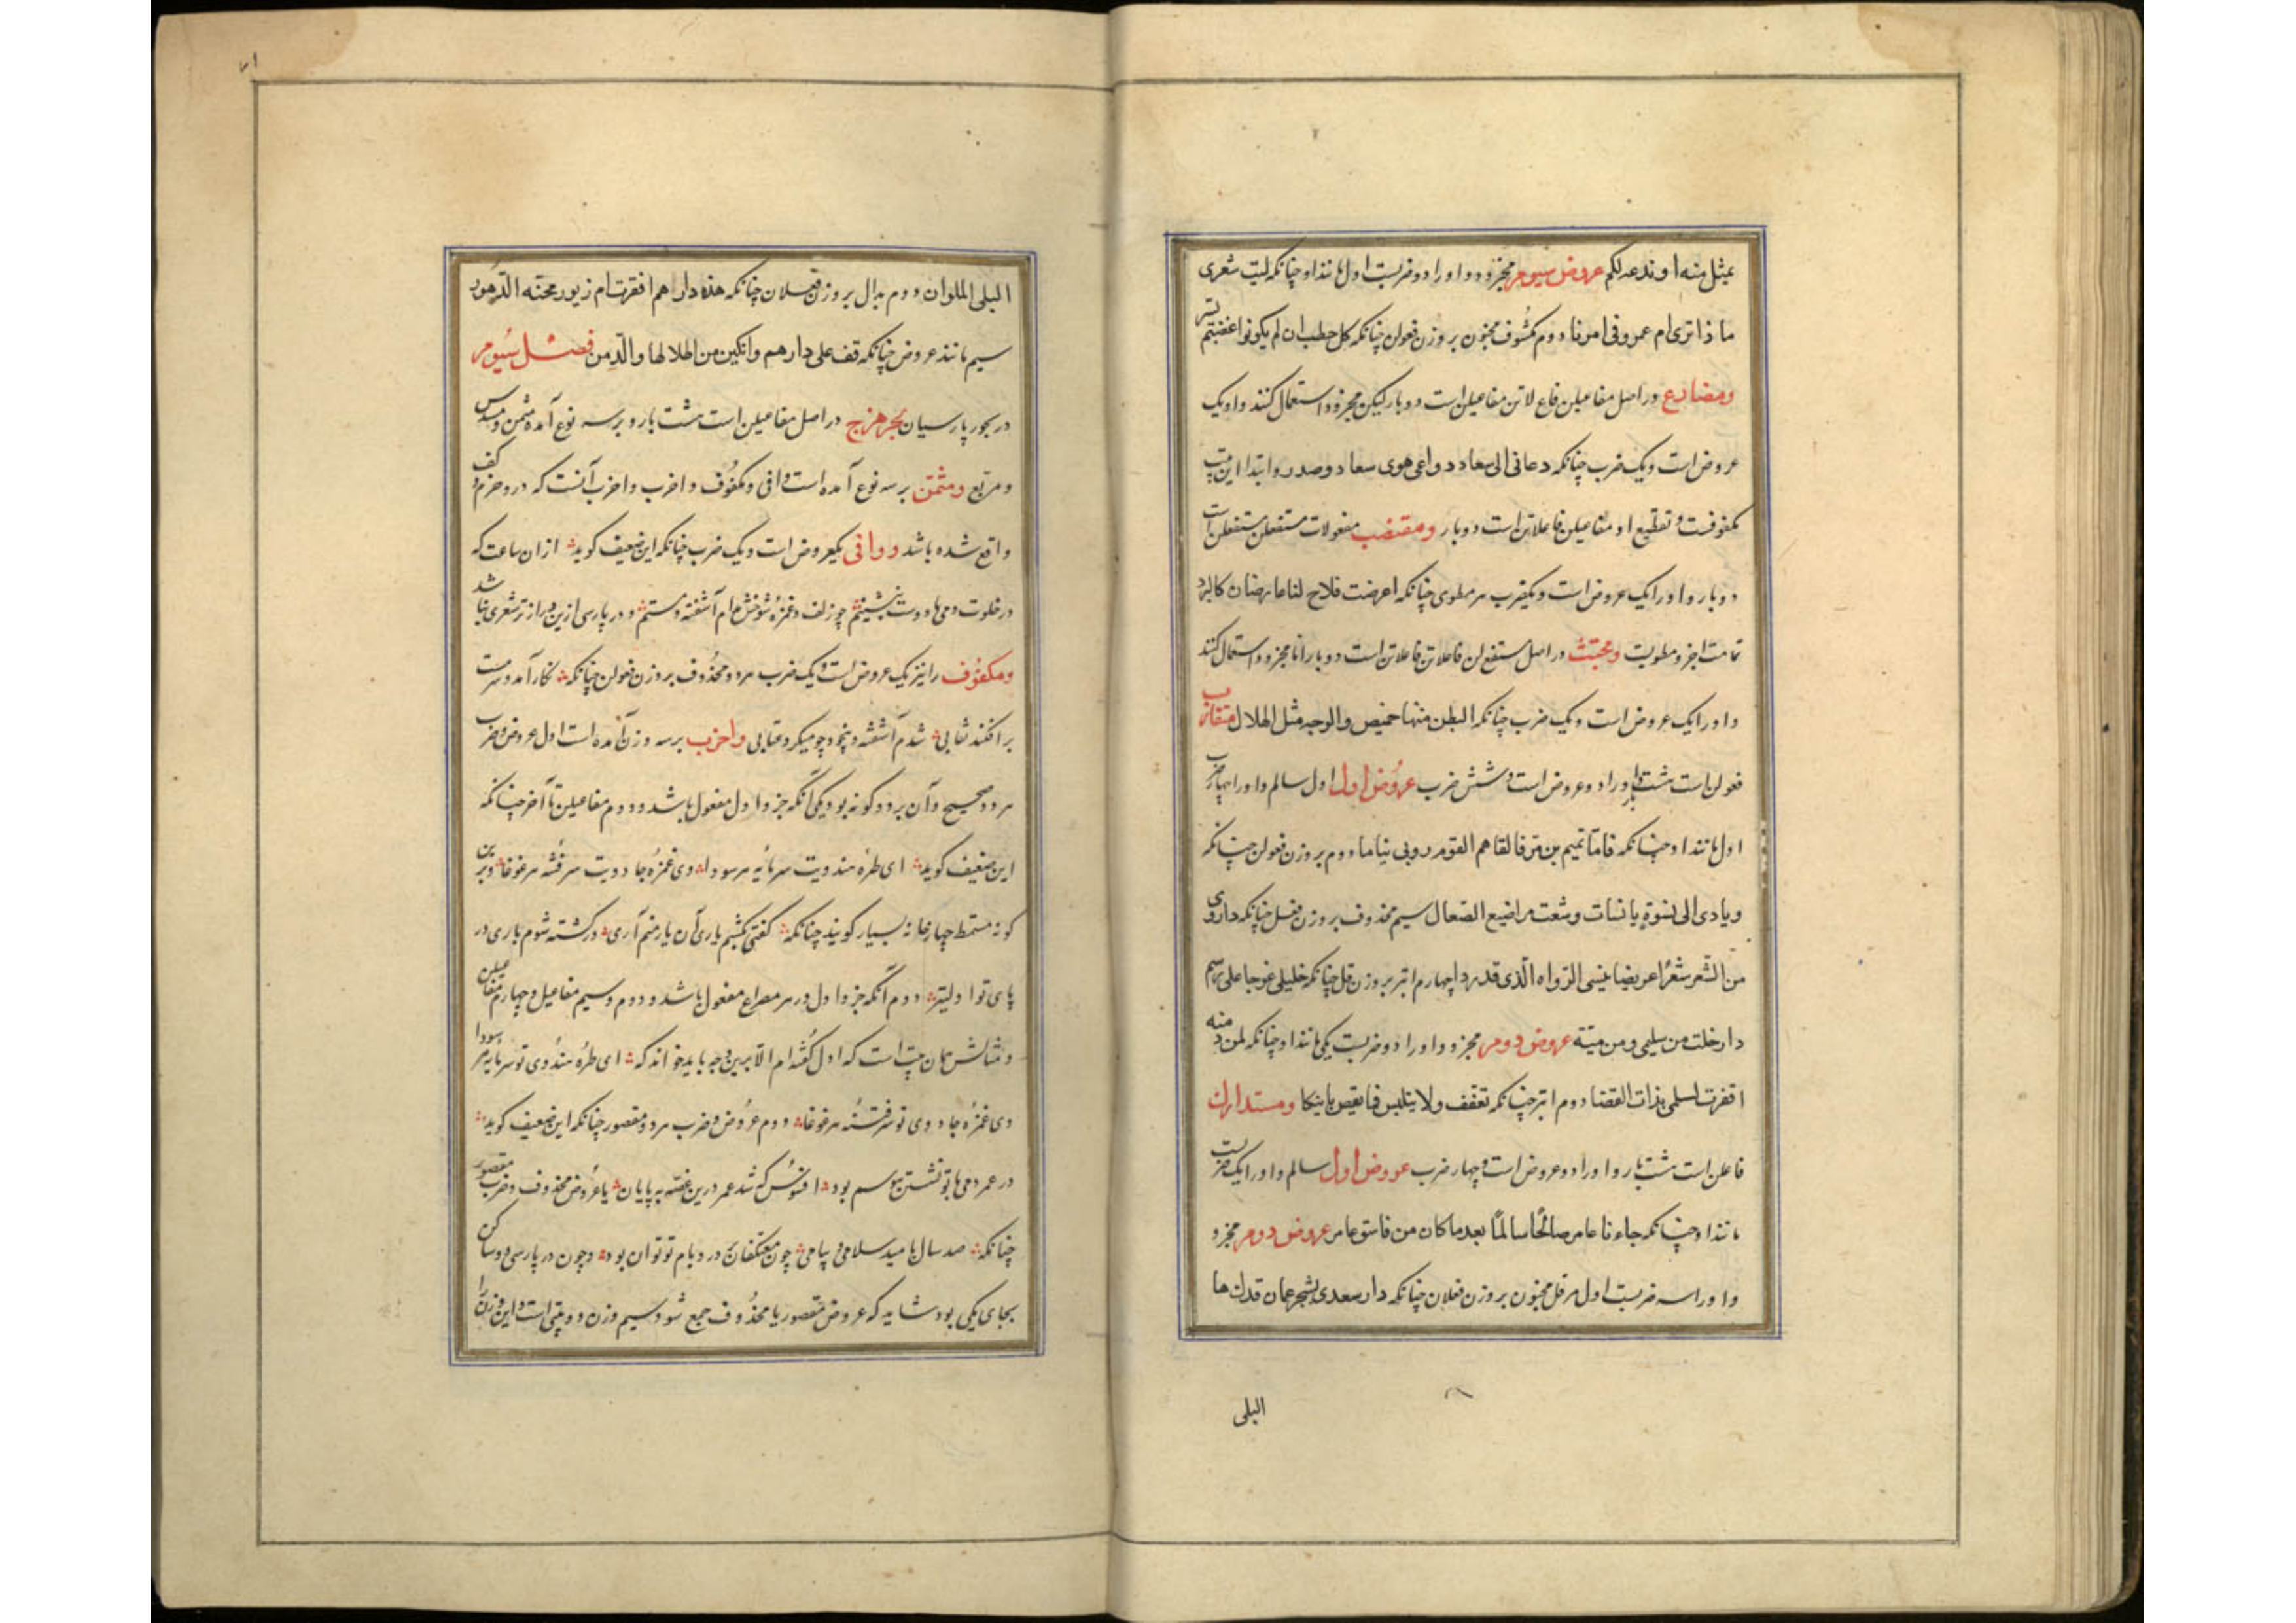 بمثل منه اوندعه لکم عروض سیوم مجزو و او را دو ضربست اول مانند او چنانکه لیت شعری
ما ذا تری ام عمرو فی امرنا دوم مکشوف مخبون بر وزن فعولن چنانکه کل خطب ان لم یکونوا غضبتم یسر
ومضارع در اصل مفاعیلن فاع لاتن مفاعیلن است دو بار لیکن مجزو استعمال کنند و او یک
عروض است و یک ضرب چنانکه دعانی الی سعاد دواعی هوی سعاد و صدر و ابتدا این بیت
مکفوفست و تقطیع او مفاعیلن فاعلاتن است دو بار ومقتضب مفعولات مستفعلن مستفعلن است
دو بار و او را یک عروض است و یکضرب هر مطوی چنانکه اعرضت فلاح لنا عارضان کالبرد
تمامت اجزو مطویست ومجتث در اصل مستفع لن فاعلاتن فاعلاتن است دو بار اما مجزو استعمال کنند
و او را یک عروض است و یک ضرب چنانکه البطن منها خمیص والوجه مثل الهلال متقارب
فعولن است هشت بار و او را دو عروض است و شش ضرب عروض اول اول سالم و او را چهار ضرب
اول مانند او چنانکه فاما تمیم بن مر فالقاهم القوم روبی نیاما دوم بر وزن فعولن چنانکه
ویادی الی نسوة یائسات وشعث مراضیع الصعال سیم محذوف بر وزن فعل چنانکه داروی
من الشعر شعرا عویضا ینسی الرواه الذی قد رو چهارم ابتر بر وزن فل چنانکه خلیلی عوجا علی رسم
دار خلت من سلیمی ومن میته عروض دوم مجزو و او را دو ضربست یکی مانند او چنانکه لمن دمنه
اقفرت لسلمی بذات الغضا دوم ابتر چنانکه تعفف ولا یبتئس فما یقض یاتیکا ومتدارک
فاعلن است هشت بار و او را دو عروض است و چهار ضرب عروض اول سالم و او را یک ضربست
مانند او چنانکه جاءنا عامر صالحا سالما بعد ما کان من فاسق عامر عروض دوم مجزو
و او را سه ضربست اول مرفل مخبون بر وزن فعلاتن چنانکه دار سعدی بشحر عمان قد کساها
البلی
۷۱
البلی الملوان دوم مذال بر وزن فعلان چنانکه هذه دارهم اقفرت ام زبور محته الدهور
سیم مانند عروض چنانکه قف علی دارهم وابکین من اطلالها والدمن فصل سیوم
در بحور پارسیان بحر هزج در اصل مفاعیلن است هشت بار و بر سه نوع آمده مثمن و مسدس
و مربع ومثمن بر سه نوع آمده است وافی و مکفوف و اخرب و اخرب آنست که درو خرم و کف
واقع شده باشد ووافی یکعروض است و یک ضرب چنانکه این ضعیف کوید از ان ساعت که
در خلوت دمی با دوست بنشینم چو زلف و غمزهٔ شوخش ام آشفته و مستم و در پارسی ازین دراز تر شعری بنا شد
ومکفوف را نیز یک عروض است و یک ضرب هر دو محذوف بر وزن فعولن چنانکه نکار آمد و سرمست
بر افکند نقابی شدم آشفته و بیخود چو میکرد عتابی واخرب بر سه وزن آمده است اول عروض و ضرب
هر دو صحیح و آن بر دو کونه بود یکی آنکه جزو اول مفعول باشد و دوم مفاعیلن تا آخر چنانکه
این ضعیف کوید ای طرهٔ هندویت سرمایهٔ هر سودا وی غمزهٔ جادویت سر فتنهٔ هر غوغا و برین
کونه مسمط چهارخانه بسیار کویند چنانکه کفتی بکشم یاری آن یار منم آری در کشته شوم باری در
پای تو اولیتر دوم آنکه جزو اول در هر مصراع مفعول باشد و دوم و سیم مفاعیل و چهارم مفاعیلن
و مثالش همان بیت است که اول کفته ام الا برین وجه باید خواند که ای طرهٔ هندوی تو سرمایهٔ هر سودا
وی غمزهٔ جادوی تو سر فتنهٔ هر غوغا دوم عروض و ضرب هر دو مقصور چنانکه این ضعیف کوید
در عمر دمی با تو نشستن هوسم بود افسوس که شد عمر درین غصه به پایان یا عروض محذوف و ضرب مقصور
چنانکه صد سال بامید سلامی و پیامی چون معتکفان در و بام تو توان بود و چون در پارسی دو ساکن
بجای یکی بود شاید که عروض مقصور با محذوف جمع شود سیم وزن دو بیتی است و این وزن را